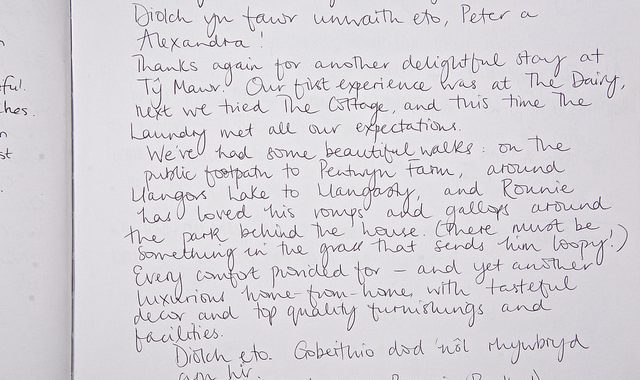 ful.
ches.
n
st
Diolch yn fawr unwaith eto, Peter a
Alexandra!
Thanks again for another delightful stay at
Tŷ Mawr. Our first experience was at The Dairy,
next we tried The Cottage, and this time The
Laundry met all our expectations.
We've had some beautiful walks: on the
public footpath to Pentwyn Farm, around
Llangors Lake to Llangasty, and Ronnie
has loved his romps and gallops around
the park behind the house. (There must be
something in the grass that sends him loopy!)
Every comfort provided for – and yet another
luxurious home-from-home, with tasteful
decor and top quality furnishings and
facilities.
Diolch eto. Gobeithio dod 'nôl rhywbryd
cyn hir.